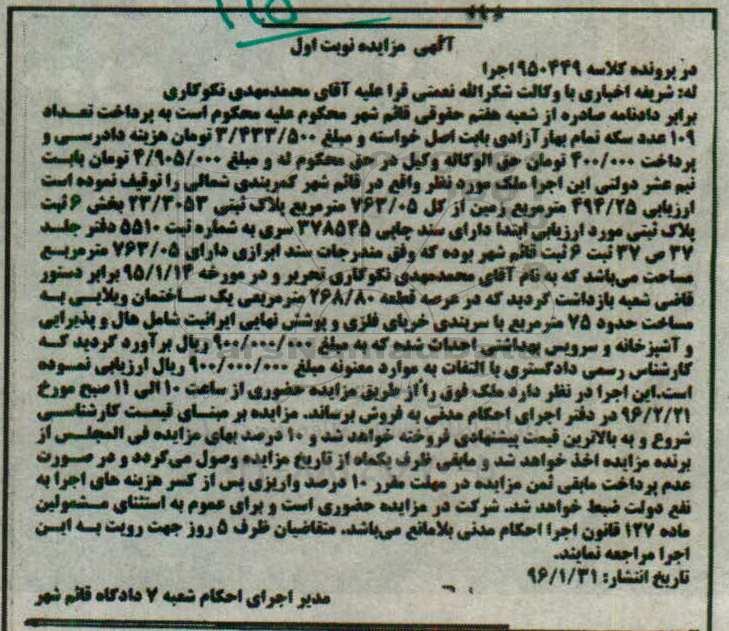 آگهی مزایده نوبت اول
در پرونده کلاسه ۹۵۰۴۴۹ اجرا
له: شریفه اخباری با وکالت شکرالله نعمتی قرا علیه آقای محمدمهدی نکوکاری
برابر دادنامه صادره از شعبه هفتم حقوقی قائم شهر محکوم علیه محکوم است به پرداخت تعداد
۱۰۹ عدد سکه تمام بهار آزادی بابت اصل خواسته و مبلغ ۳/۴۳۳/۵۰۰ تومان هزینه دادرسی و
پرداخت ۴۰۰/۰۰۰ تومان حق الوکاله وکیل در حق محکوم له و مبلغ ۴/۹۰۵/۰۰۰ تومان بابت
نیم عشر دولتی این اجرا ملک مورد نظر واقع در قائم شهر کمربندی شمالی را توقیف نموده است
ارزیابی ۴۹۴/۲۵ مترمربع زمین از کل ۷۶۳/۰۵ مترمربع پلاک ثبتی ۲۳/۳۰۵۳ بخش ۶ ثبت
پلاک ثبتی مورد ارزیابی ابتدا دارای سند چاپی ۳۷۸۵۴۵ سری به شماره ثبت ۵۵۱۰ دفتر جلد
۳۷ ص ۳۷ ثبت ۶ ثبت قائم شهر بوده که وفق مندرجات سند ابرازی دارای ۷۶۳/۰۵ مترمربع
مساحت می‌باشد که به نام آقای محمدمهدی نکوکاری تحریر و در مورخه ۹۵/۱/۱۴ برابر دستور
قاضی شعبه بازداشت گردید که در عرصه قطعه ۲۶۸/۸۰ مترمربعی یک ساختمان ویلایی به
مساحت حدود ۷۵ مترمربع با سربندی خرپای فلزی و پوشش نهایی ایرانیت شامل هال و پذیرایی
و آشپزخانه و سرویس بهداشتی احداث شده که به مبلغ ۹۰۰/۰۰۰/۰۰۰ ریال برآورد گردید که
کارشناس رسمی دادگستری با التفات به موارد معنونه مبلغ ۹۰۰/۰۰۰/۰۰۰ ریال ارزیابی نموده
است.این اجرا در نظر دارد ملک فوق را از طریق مزایده حضوری از ساعت ۱۰ الی ۱۱ صبح مورخ
۹۶/۲/۲۱ در دفتر اجرای احکام مدنی به فروش برساند. مزایده بر مبنای قیمت کارشناسی
شروع و به بالاترین قیمت پیشنهادی فروخته خواهد شد و ۱۰ درصد بهای مزایده فی المجلس از
برنده مزایده اخذ خواهد شد و مابقی ظرف یکماه از تاریخ مزایده وصول می‌گردد و در صورت
عدم پرداخت مابقی ثمن مزایده در مهلت مقرر ۱۰ درصد واریزی پس از کسر هزینه های اجرا به
نفع دولت ضبط خواهد شد. شرکت در مزایده حضوری است و برای عموم به استثنای مشمولین
ماده ۱۲۷ قانون اجرا احکام مدنی بلامانع می‌باشد. متقاضیان ظرف ۵ روز جهت رویت به این
اجرا مراجعه نمایند.
تاریخ انتشار: ۹۶/۱/۳۱
مدیر اجرای احکام شعبه ۷ دادگاه قائم شهر